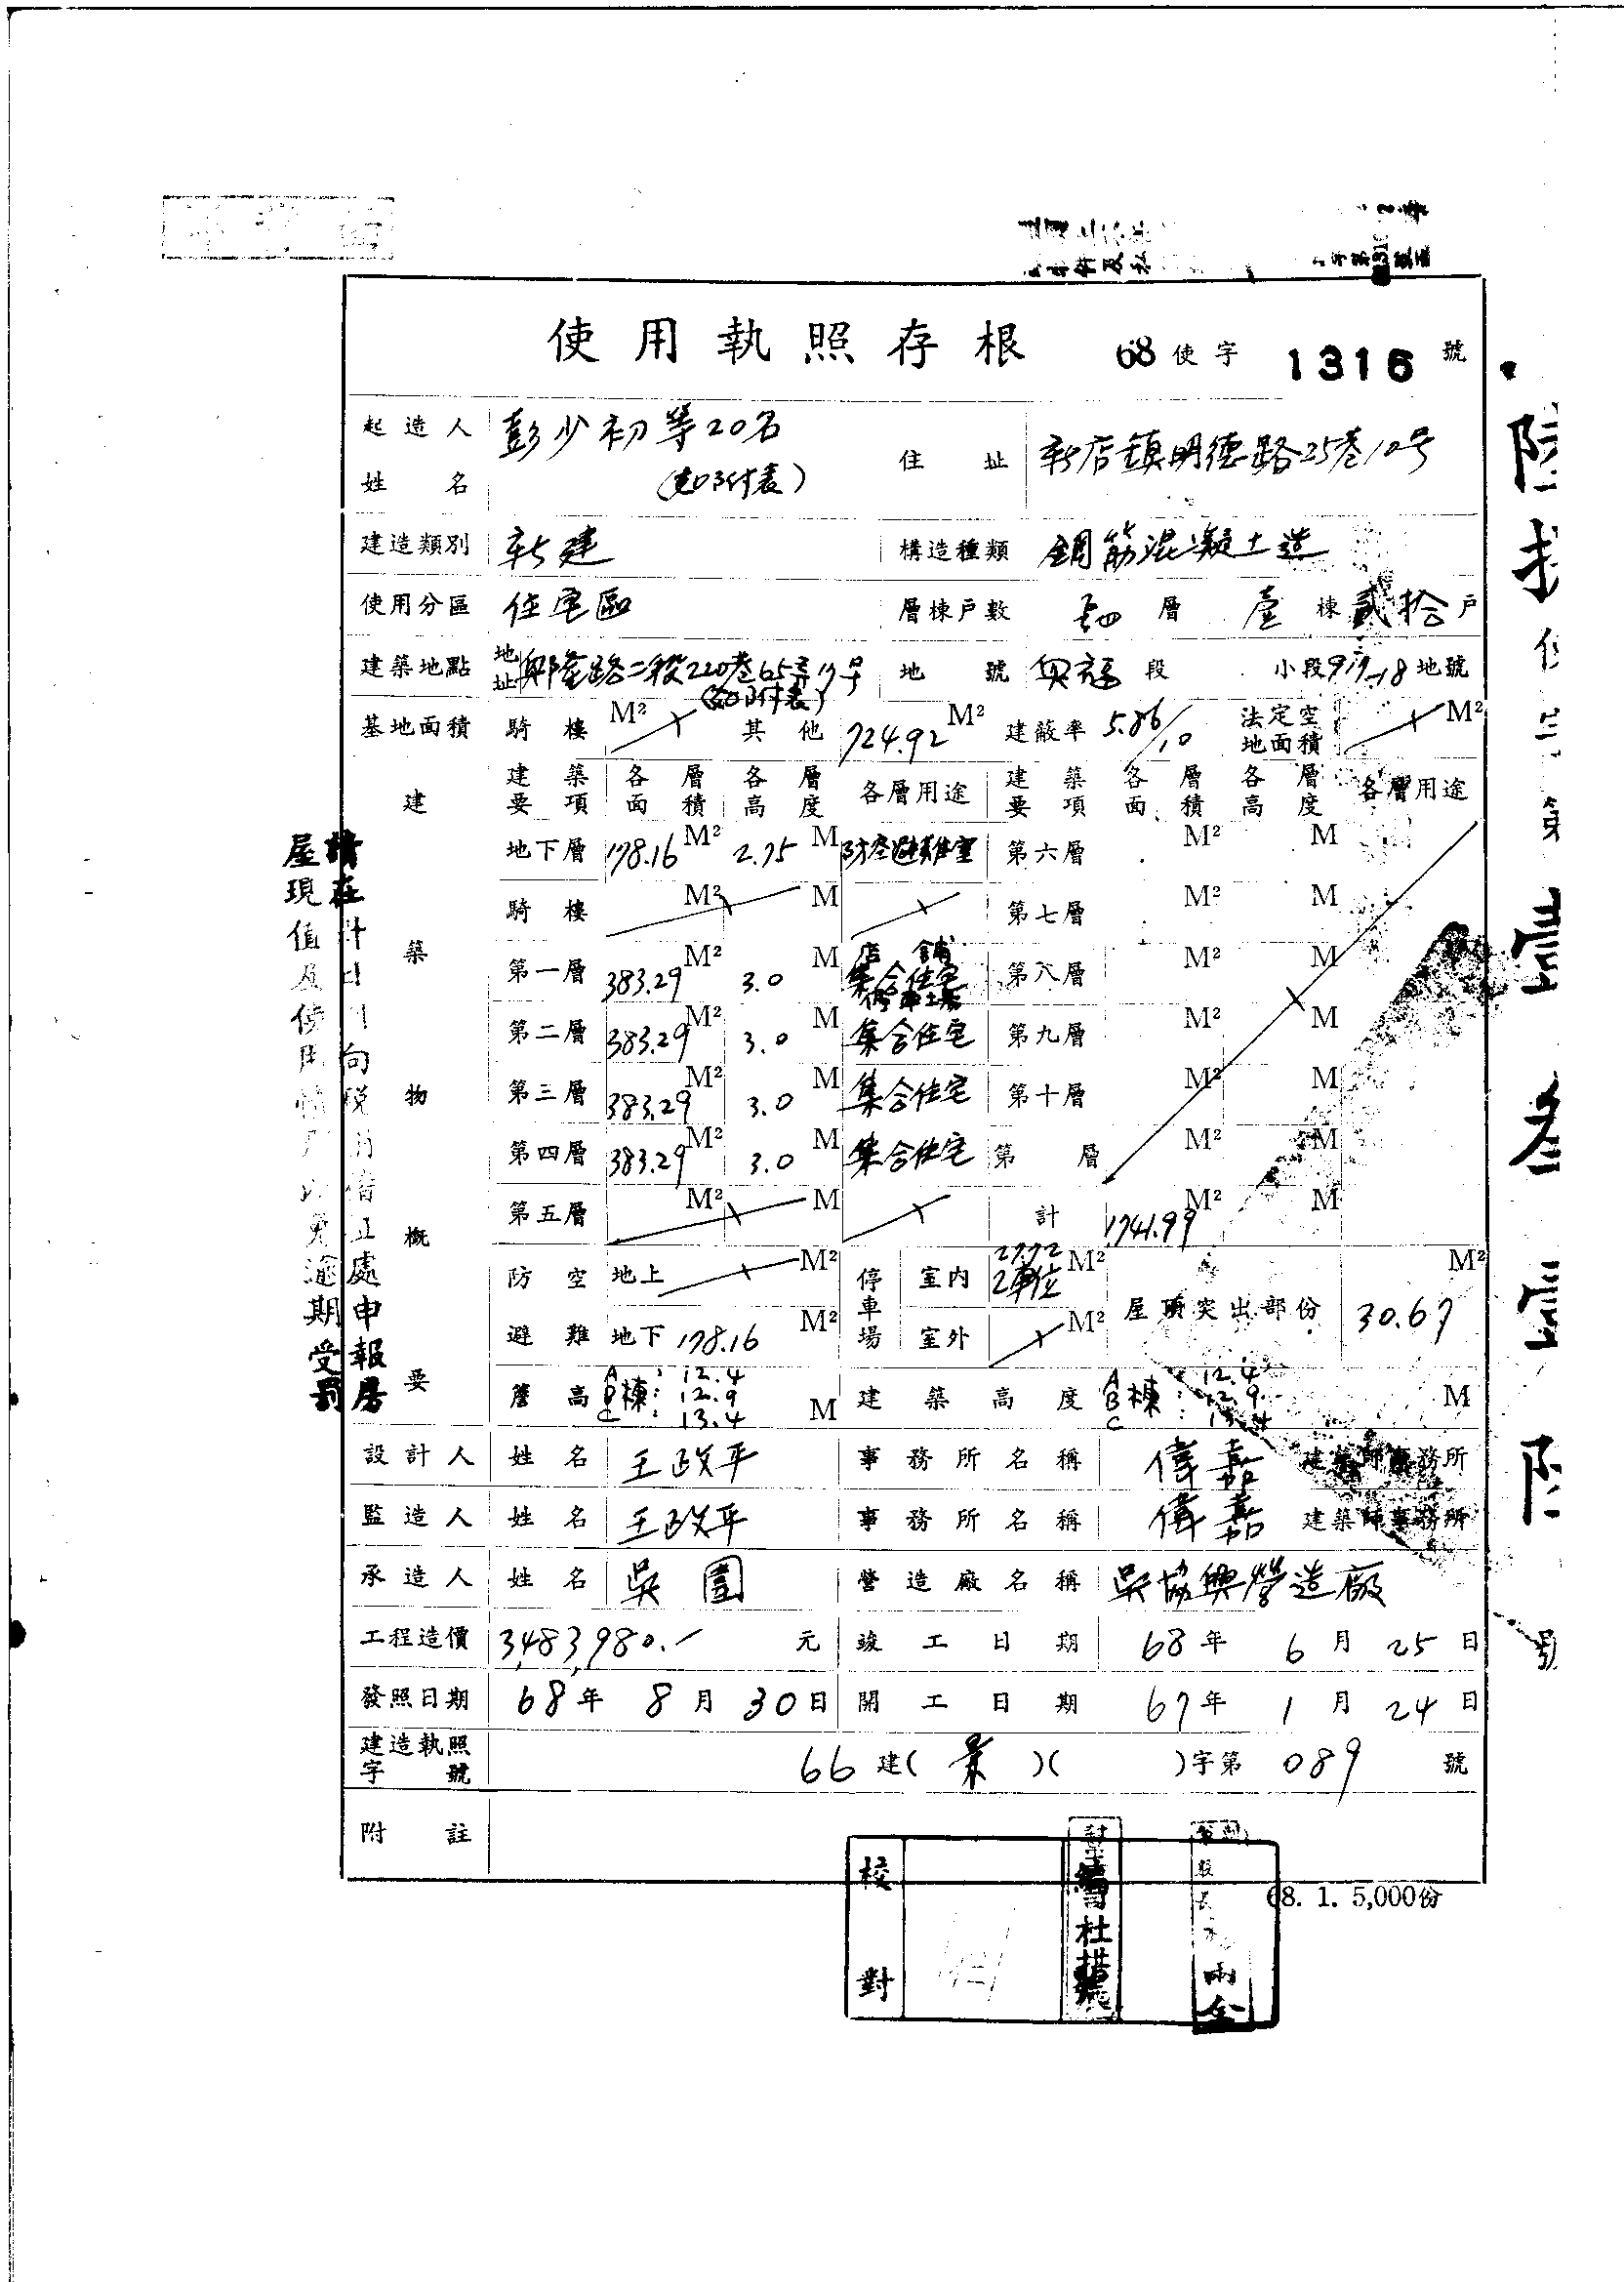 使用執照存根 68使字 1316 號
起造人姓名 彭少初等20名 (如附表) 住址 新店鎮明德路25巷10号
建造類別 新建 構造種類 鋼筋混凝土造
使用分區 住宅區 層棟戶數 四層 壹棟 貳拾戶
建築地點 地址 興隆路二段220巷65弄17号 (如附表) 地號 興福段 小段 917-18 地號
基地面積 騎樓 M² 其他 724.92 M² 建蔽率 5.86/10 法定空地面積 M²
建築物概要
建築要項 各層面積 各層高度 各層用途 建築要項 各層面積 各層高度 各層用途
地下層 178.16 M² 2.75 M 防空避難室 第六層 M² M
騎樓 M² M 第七層 M² M
第一層 383.29 M² 3.0 M 店舖 集合住宅 第八層 M² M
第二層 383.29 M² 3.0 M 集合住宅 第九層 M² M
第三層 383.29 M² 3.0 M 集合住宅 第十層 M² M
第四層 383.29 M² 3.0 M 集合住宅 第 層 M² M
第五層 M² M 計 1741.99 M² M
防空避難 地上 M² 停車場 室內 27.72 M² 2車位 屋頂突出部份 30.67 M²
地下 178.16 M² 室外 M²
簷高 A B C 棟: 12.4 12.9 13.4 M 建築高度 A B C 棟: 12.4 12.9 13.4 M
設計人 姓名 王政平 事務所名稱 偉嘉 建築師事務所
監造人 姓名 王政平 事務所名稱 偉嘉 建築師事務所
承造人 姓名 吳園 營造廠名稱 吳協興營造廠
工程造價 3,483,980.- 元 竣工日期 68年 6月 25日
發照日期 68年 8月 30日 開工日期 67年 1月 24日
建造執照字號 66建(景)( )字第 089 號
附註
68. 1. 5,000份
校對